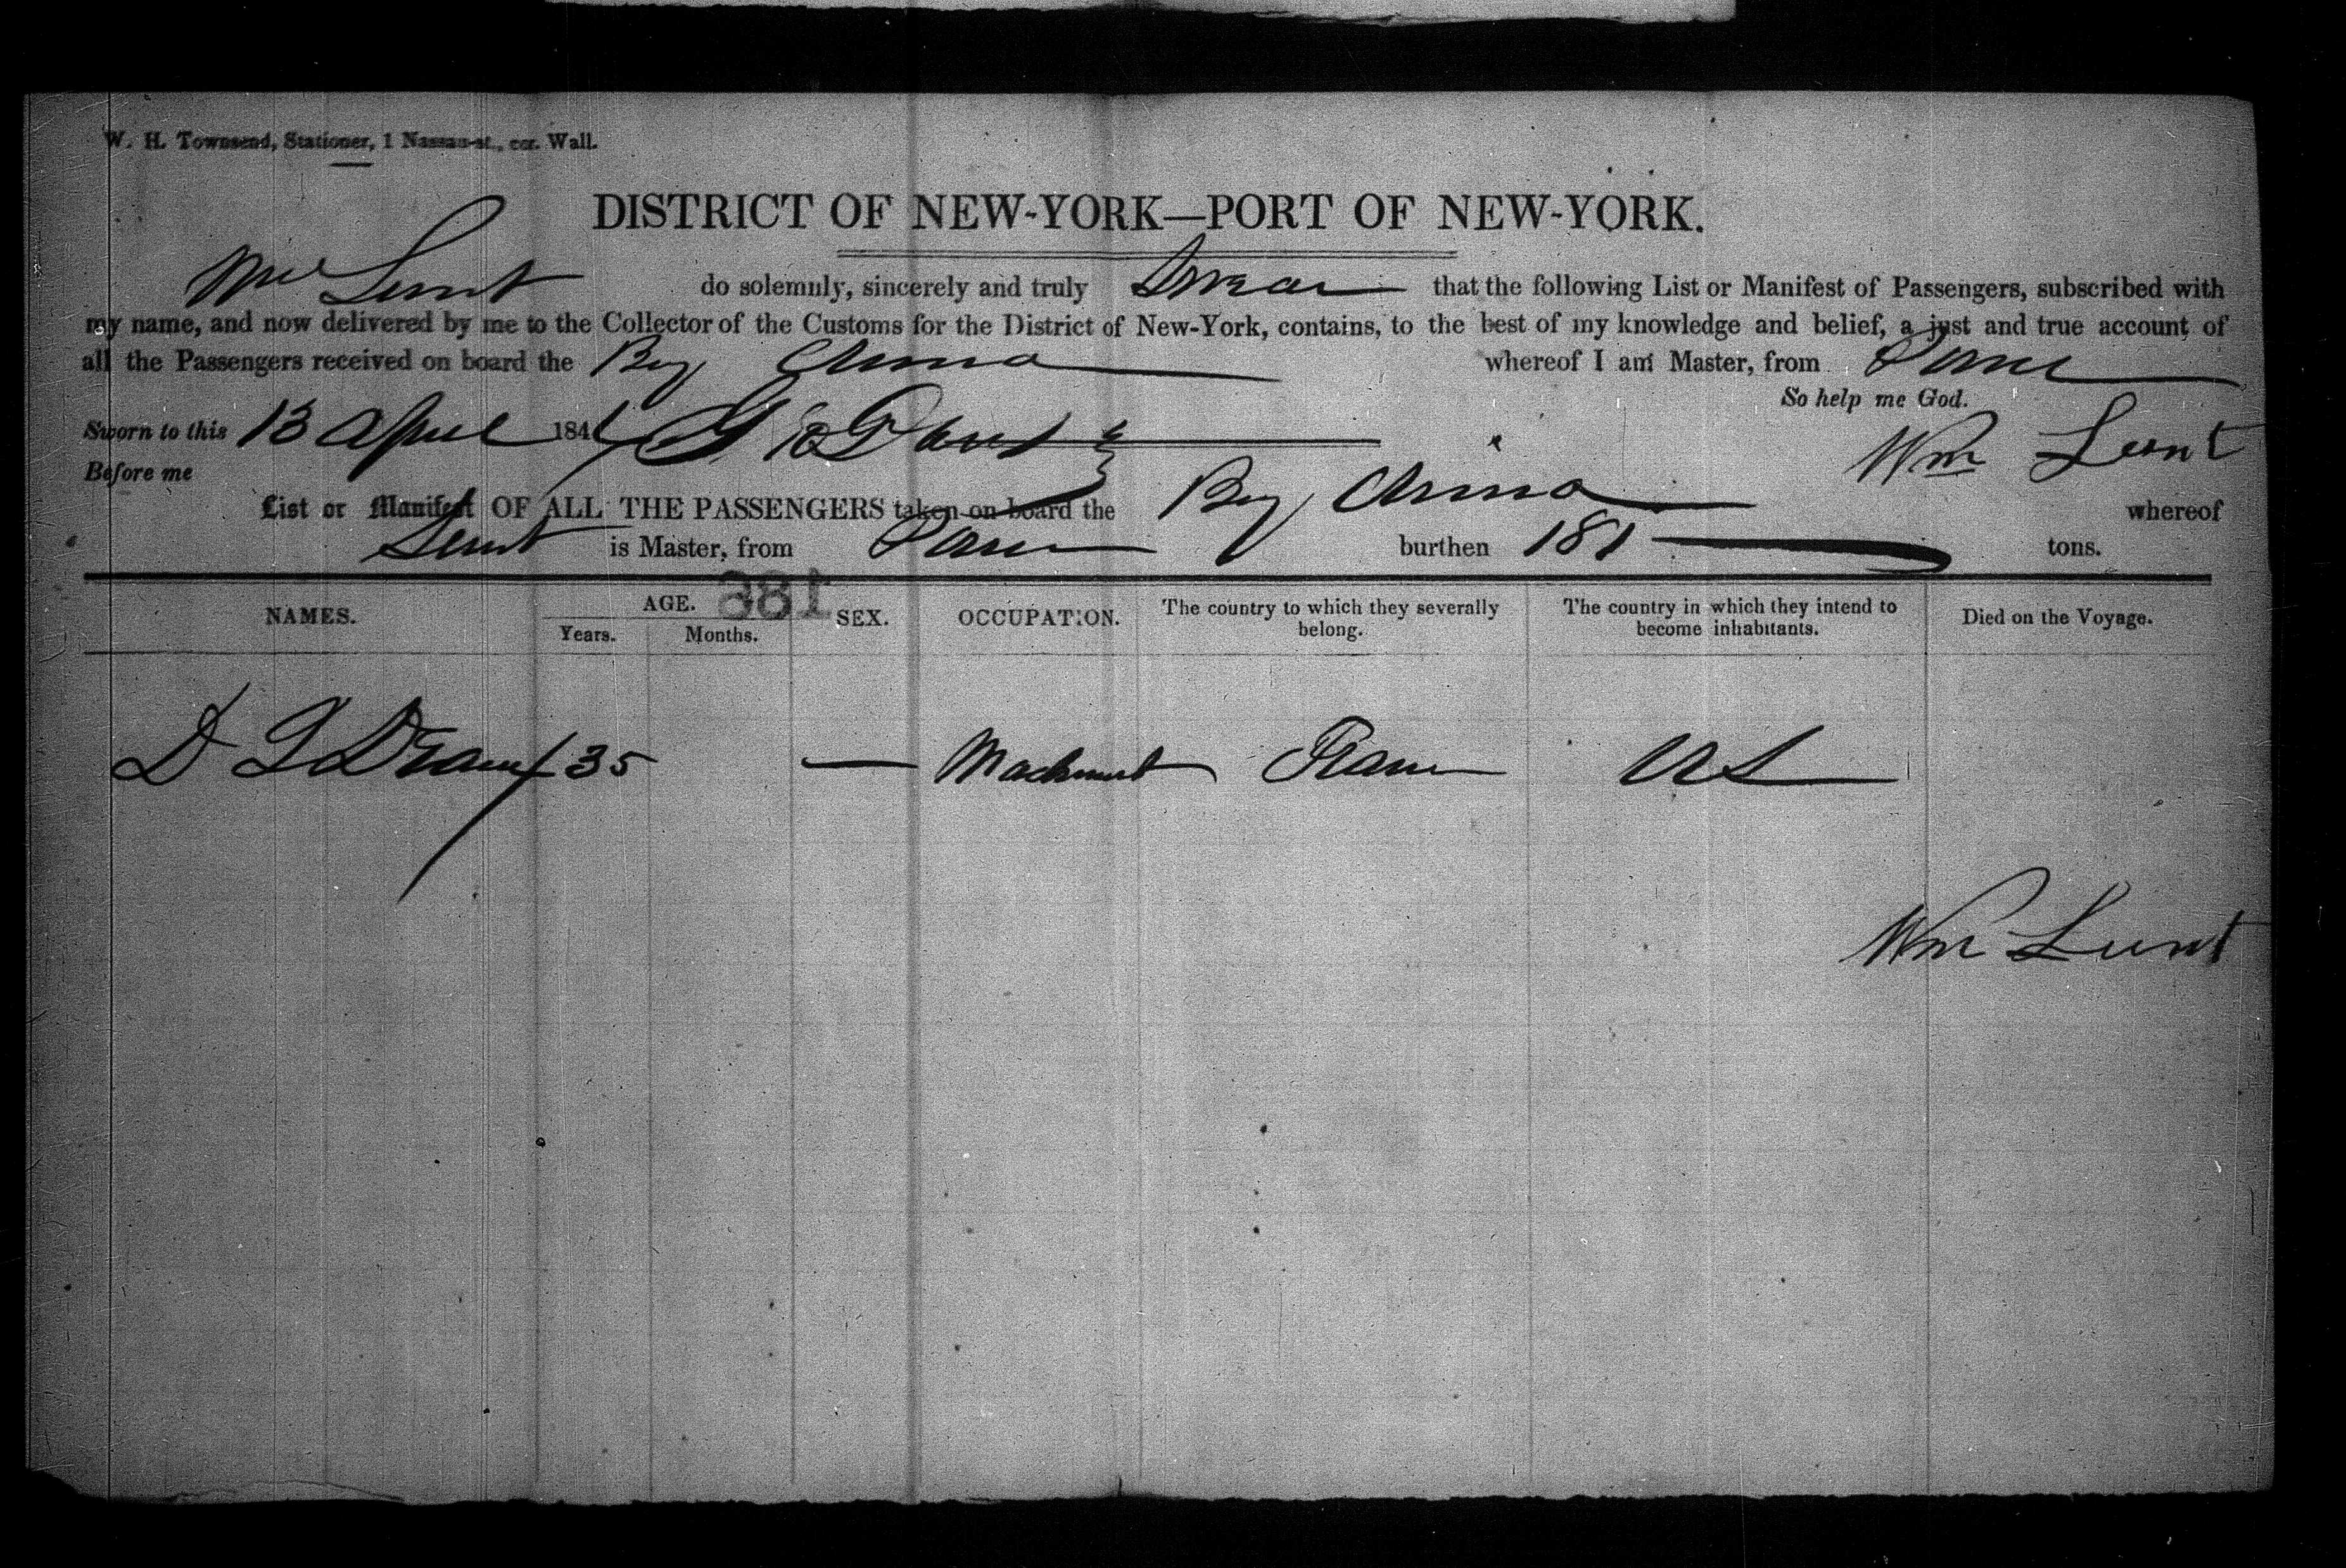 W. H. Townsend, Stationer, 1 Nassau-st., cor. Wall.
DISTRICT OF NEW-YORK—PORT OF NEW-YORK.
Wm Lunt do solemnly, sincerely and truly Swear that the following List or Manifest of Passengers, subscribed with
my name, and now delivered by me to the Collector of the Customs for the District of New-York, contains, to the best of my knowledge and belief, a just and true account of
all the Passengers received on board the Brig Anna whereof I am Master, from
So help me God.
Sworn to this 13 April 184
Wm Lunt
Before me
List or Manifest OF ALL THE PASSENGERS taken on board the Brig Anna whereof
Lunt is Master, from burthen 181 tons.
186
NAMES. AGE. SEX. OCCUPATION. The country to which they severally belong. The country in which they intend to become inhabitants. Died on the Voyage.
Years. Months.
D 35 — Machinist US
Wm Lunt